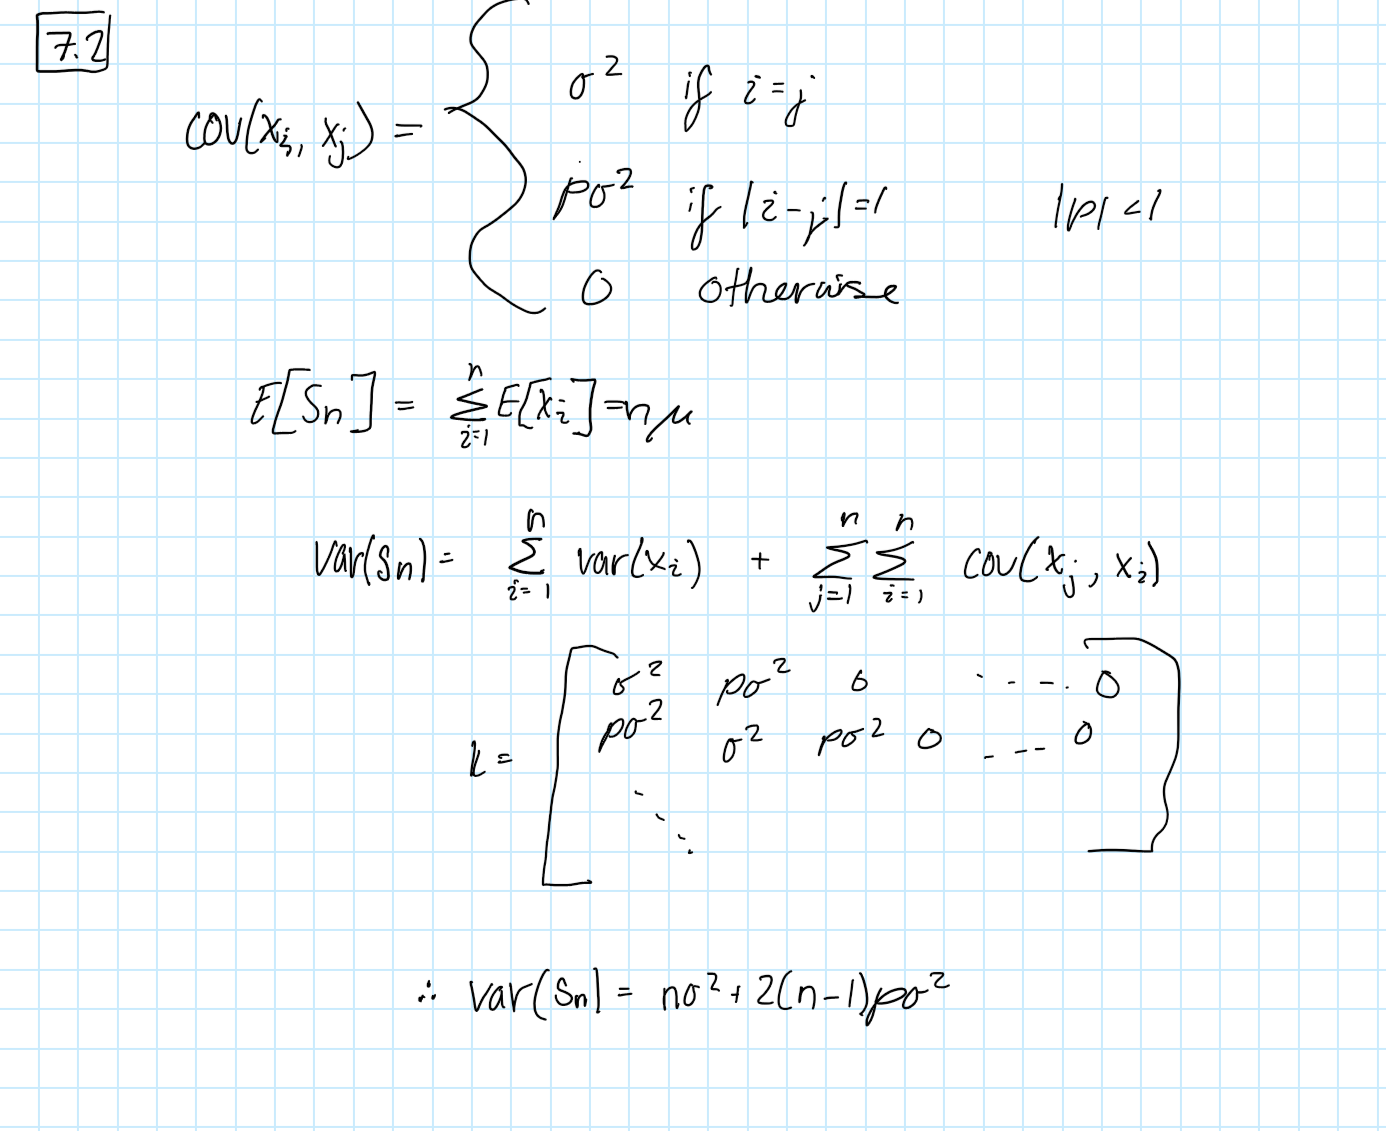 7.2
σ² if i=j
COV(Xi, Xj) =
ρσ² if |i-j|=1 |ρ| <1
0 otherwise
E[Sn] = Σ_{i=1}^{n} E[Xi] = nμ
Var(Sn) = Σ_{i=1}^{n} var(Xi) + Σ_{j=1}^{n} Σ_{i=1}^{n} COV(Xj, Xi)
σ² ρσ² 0 ---- 0
ρσ² σ² ρσ² 0 --- 0
k =
∴ Var(Sn) = nσ² + 2(n-1)ρσ²